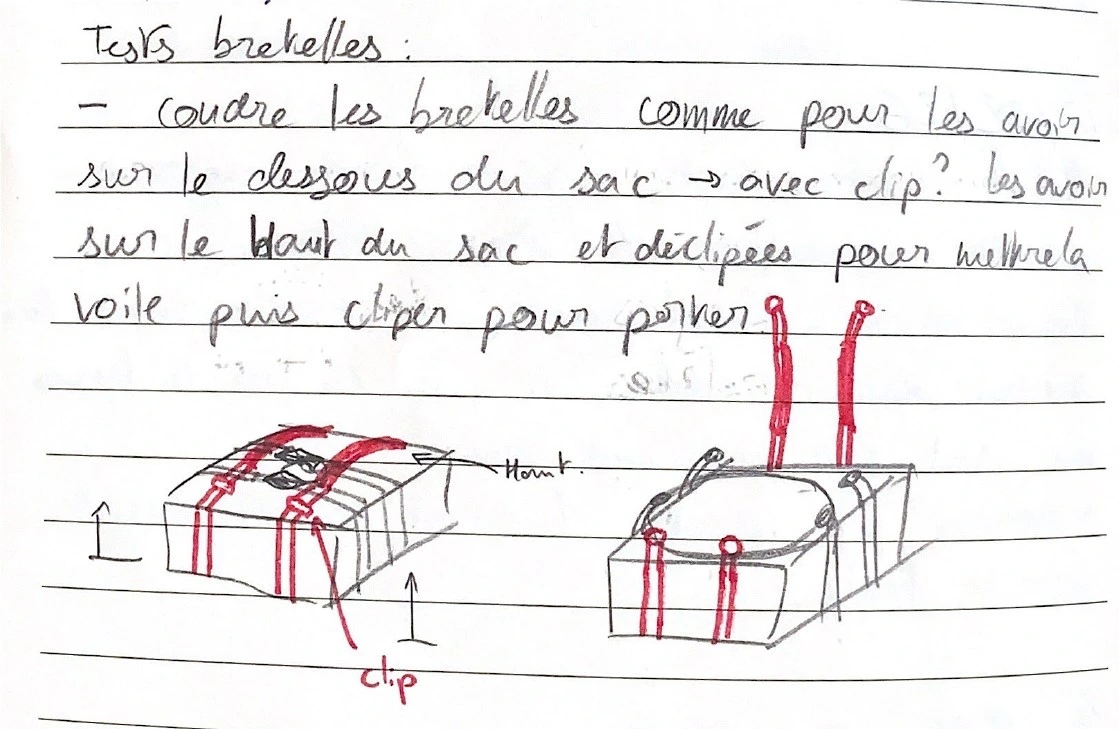 Tests bretelles :
- coudre les bretelles comme pour les avoir
sur le dessous du sac → avec clip? les avoir
sur le haut du sac et déclipées pour mettre la
voile puis cliper pour porter.
Haut.
clip